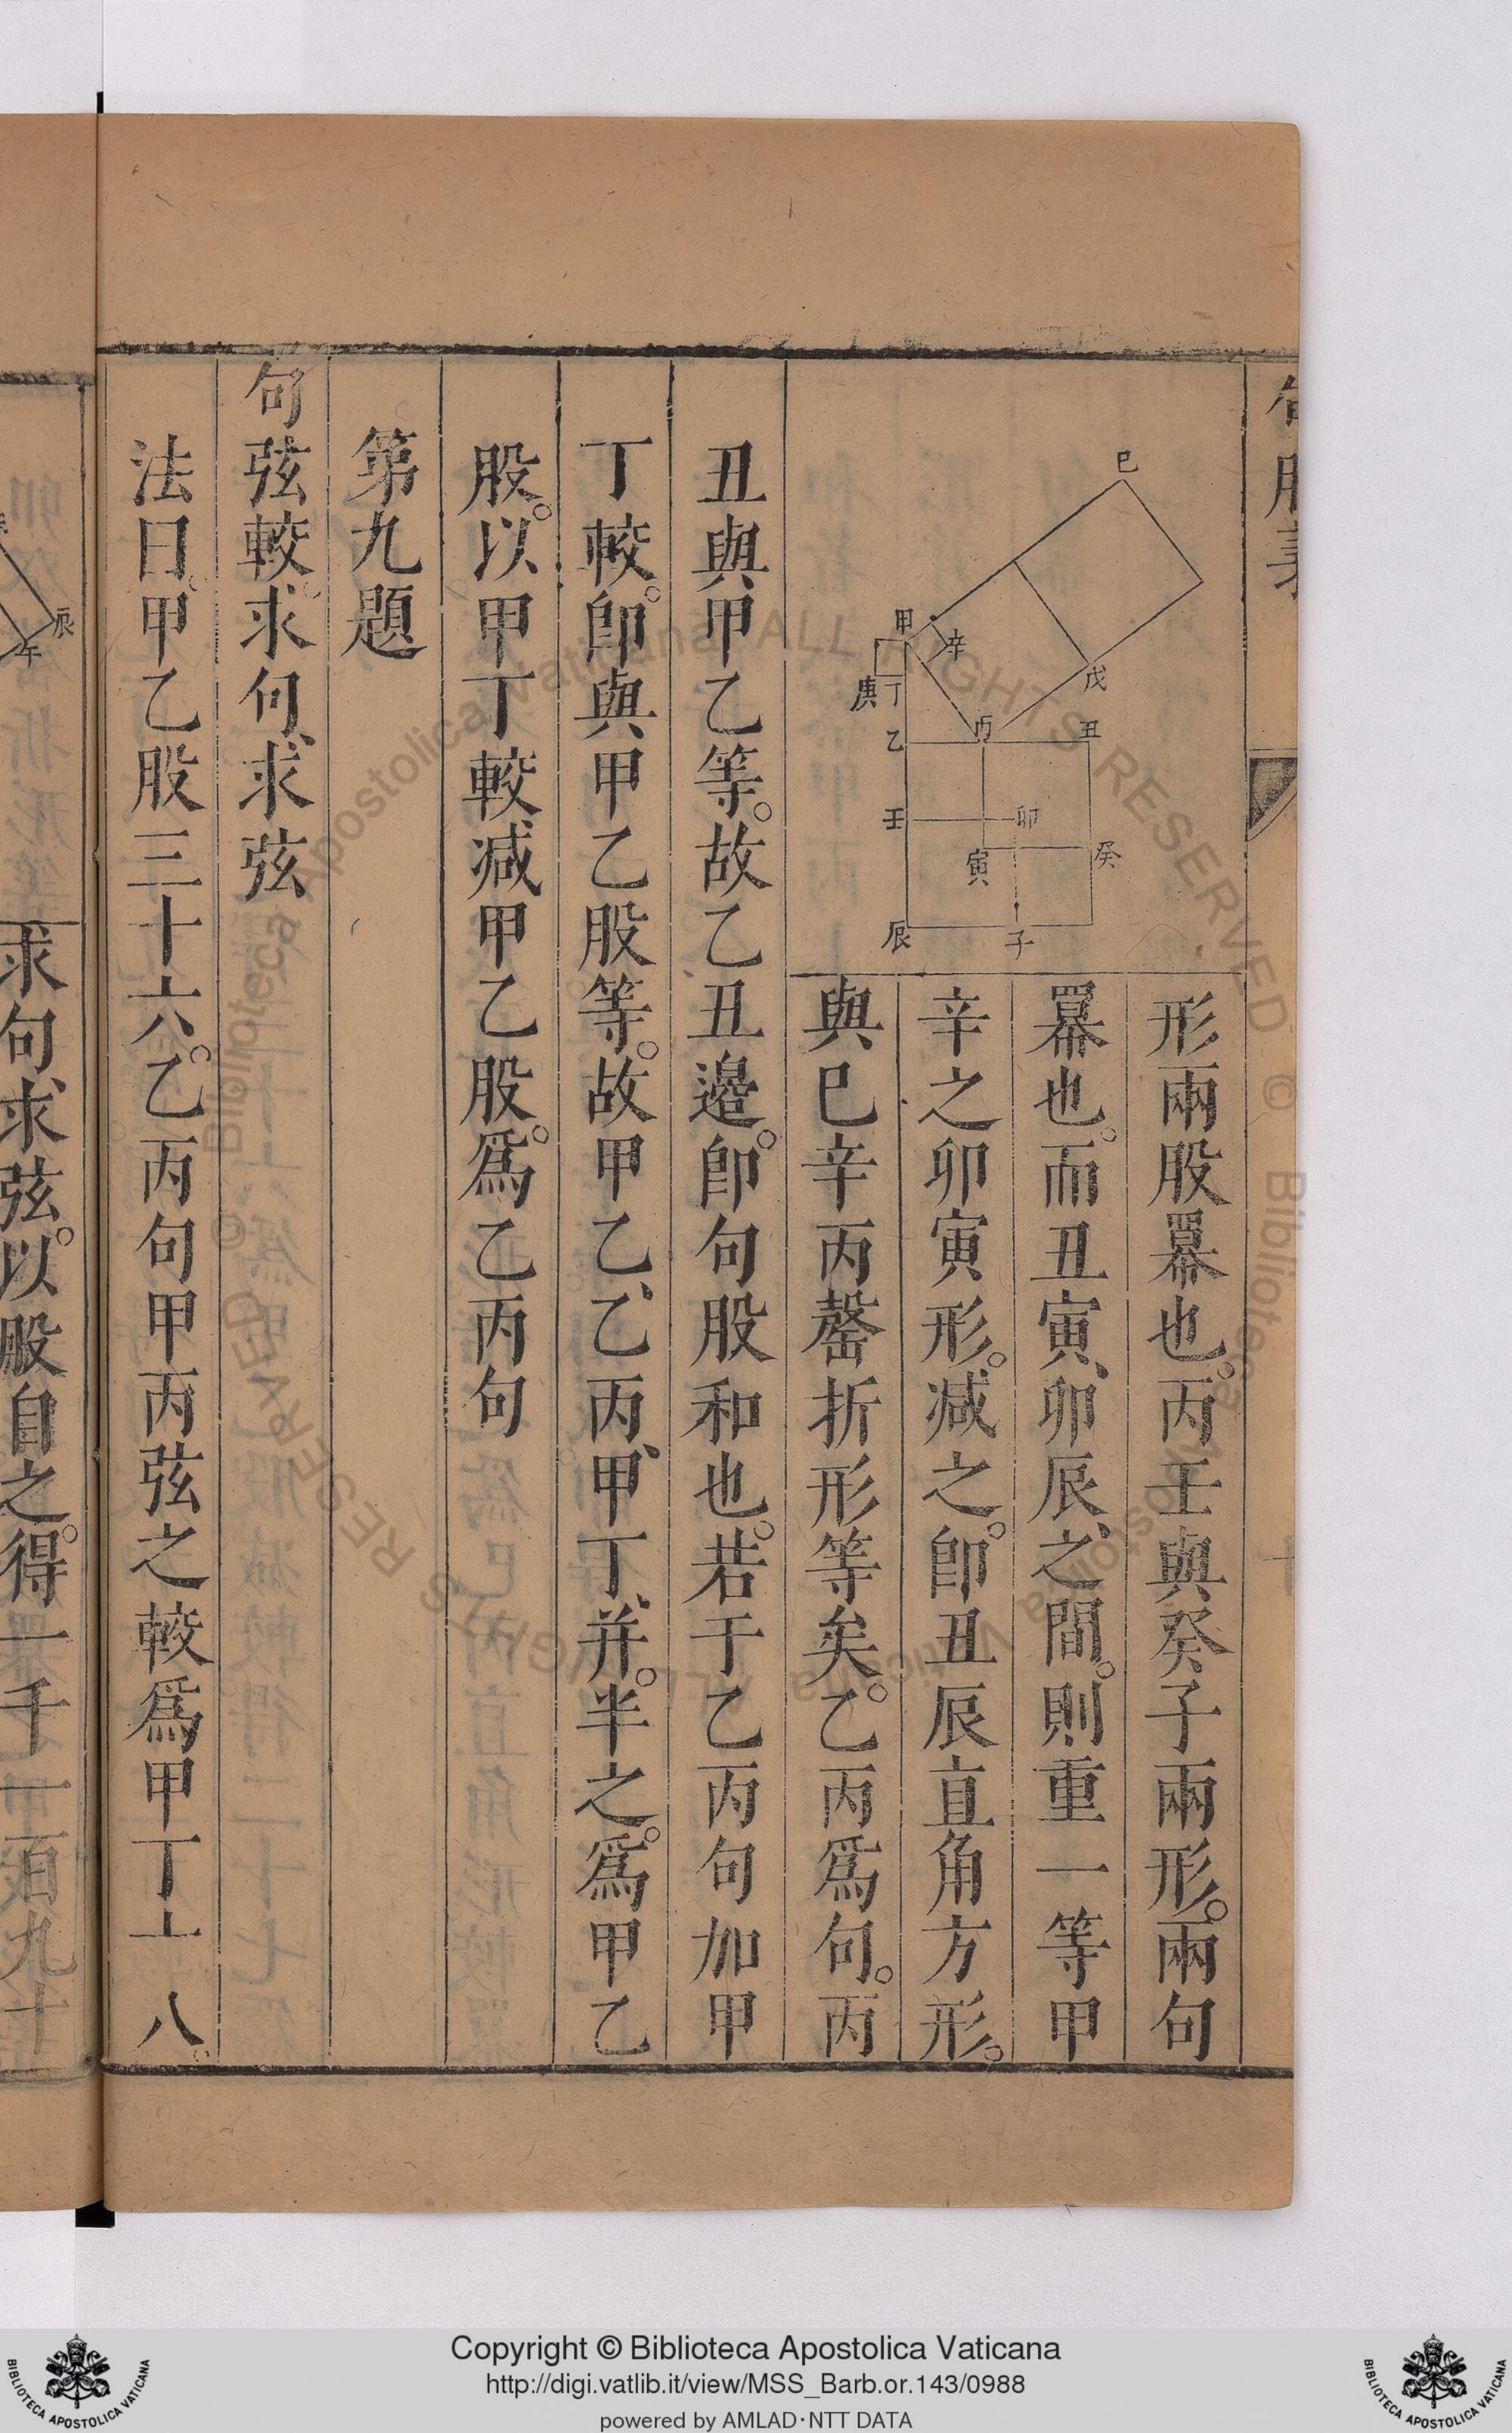 句股義
巳
甲
辛
庚
丁
戊
乙
丙
丑
壬
卯
寅
癸
辰
子
形兩股羃也。丙壬與癸子兩形。兩句
羃也。而丑寅、卯辰、之間。則重一等甲
辛之卯寅形。減之。卽丑辰直角方形。
與巳辛丙罄折形等矣。乙丙爲句。丙
丑與甲乙等。故乙丑邉。卽句股和也。若干乙丙句加甲
丁較。卽與甲乙股等。故甲乙、乙丙、甲丁、并。半之。爲甲乙
股。以甲丁較減甲乙股。爲乙丙句
第九題
句弦較。求句、求弦
法曰。甲乙股三十六。乙丙句甲丙弦之較爲甲丁十八。
辰
午
求句、求弦。以股自之。得一千二百九十
Copyright © Biblioteca Apostolica Vaticana
http://digi.vatlib.it/view/MSS_Barb.or.143/0988
powered by AMLAD·NTT DATA
BIBLIOTECA APOSTOLICA VATICANA
BIBLIOTECA APOSTOLICA VATICANA
Biblioteca Apostolica Vaticana ALL RIGHTS RESERVED ©